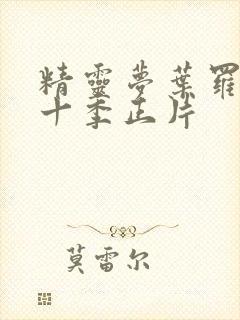 精靈夢葉羅
十季正片
莫雷尔